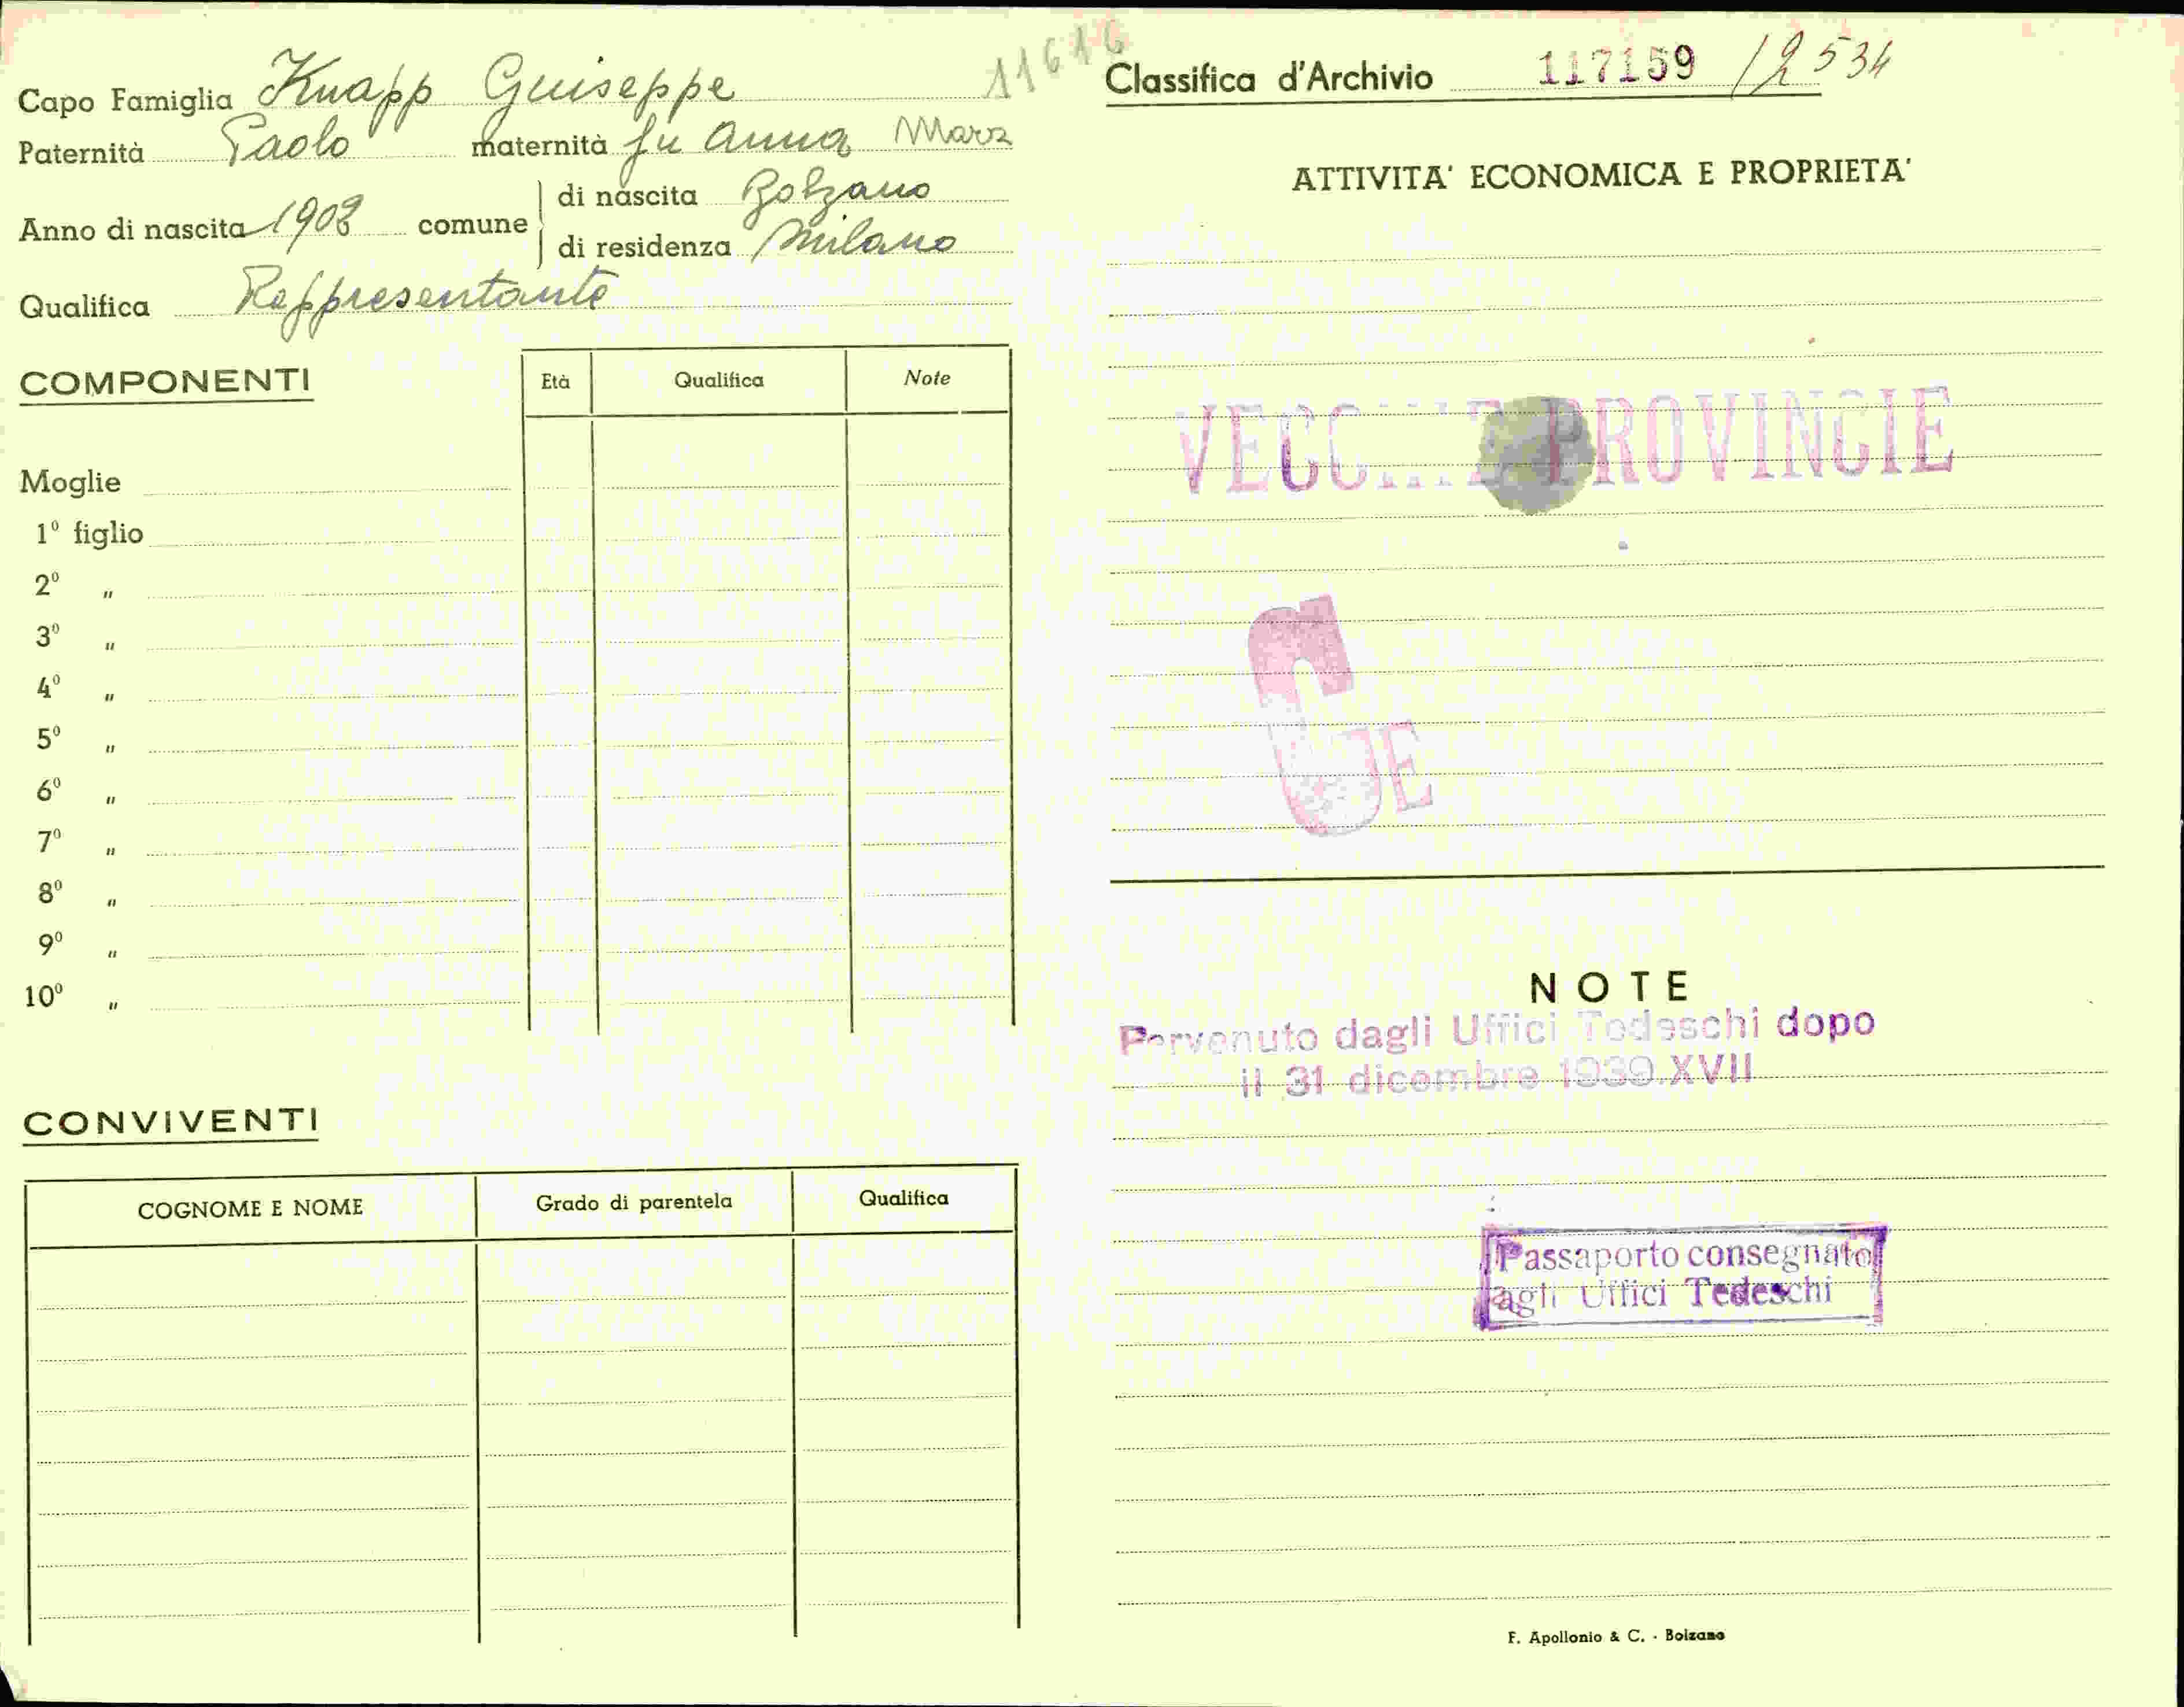 Capo Famiglia Knapp Guiseppe
Paternità Paolo maternità fu Anna Marx
Anno di nascita 1908 comune di nascita Bolzano
di residenza Milano
Qualifica Rappresentante
COMPONENTI
Età Qualifica Note
Moglie
1º figlio
2º "
3º "
4º "
5º "
6º "
7º "
8º "
9º "
10º "
CONVIVENTI
COGNOME E NOME Grado di parentela Qualifica
11616
Classifica d'Archivio 117159 / 2534
ATTIVITA' ECONOMICA E PROPRIETA'
VECCHIE PROVINCIE
G
UE
NOTE
Pervenuto dagli Uffici Tedeschi dopo
il 31 dicembre 1939.XVII
Passaporto consegnato
agli Uffici Tedeschi
F. Apollonio & C. - Bolzano